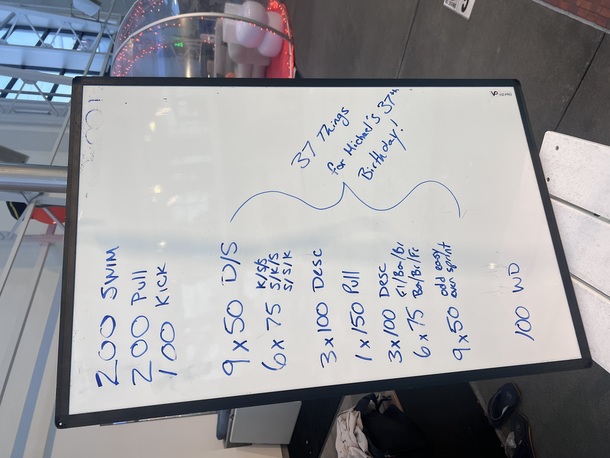 200 SWIM
200 Pull
100 KICK
9 x 50 D/S
6 x 75 K/S/S
S/K/S
S/S/K
3 x 100 Desc
1 x 150 Pull
3 x 100 Desc
6 x 75 Fl/Ba/Br
Ba/Br/Fr
9 x 50 odd easy
even sprint
37 Things
for Michael's 37th
Birthday!
100 WD